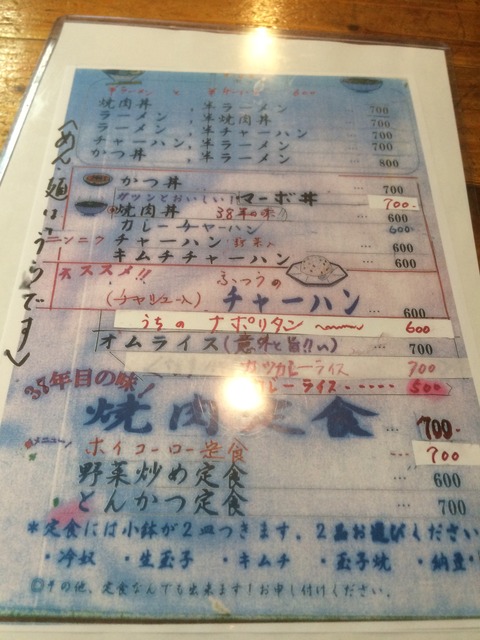 焼肉丼 、半ラーメン … 700
ラーメン 、半焼肉丼 … 700
ラーメン 、半チャーハン … 700
チャーハン、半ラーメン … 700
かつ丼 、半ラーメン … 800
(めん類はうらです)
かつ丼 … 700
ガツンとおいしい! マーボ丼 700-
焼肉丼 38年の味!! … 600
カレーチャーハン 600
ニンニク チャーハン … 600
キムチチャーハン … 600
オススメ!! ふつうの
(チャシュー入) チャーハン … 600
うちの ナポリタン 600
オムライス(意外と旨!!い) … 700
カツカレーライス 700
カレーライス・・・・・ 500
38年目の味!
焼肉定食 … 700-
メニュー!
ホイコーロー定食 --- 700
野菜炒め定食 … 600
とんかつ定食 … 700
*定食には小鉢が2皿つきます。2品お選びください
・冷奴 ・生玉子 ・キムチ ・玉子焼 ・納豆・
その他、定食なんでも出来ます!お申し付けください。